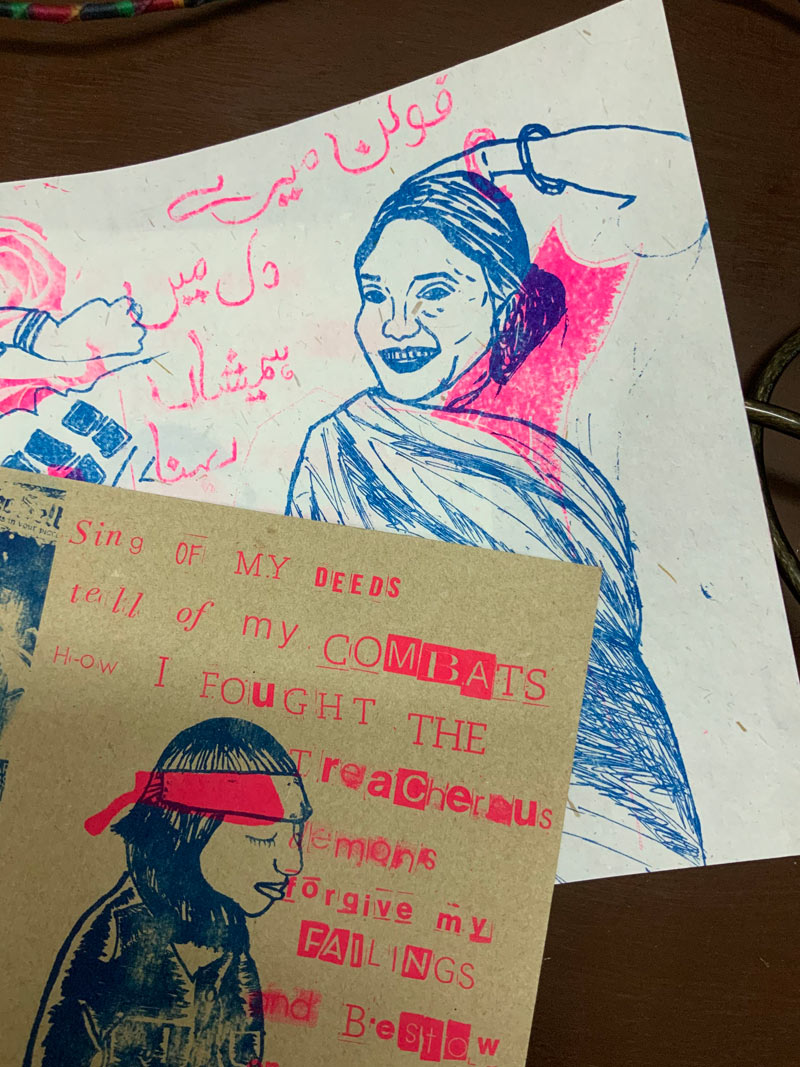 فولن میرے
دل میں
ہمیشاں
رہنا
Sing OF MY DEEDS
tell of my COMBATS
How I FOuGHT THE
Treacherous
demons
forgive my
FAILINGS
and Bestow